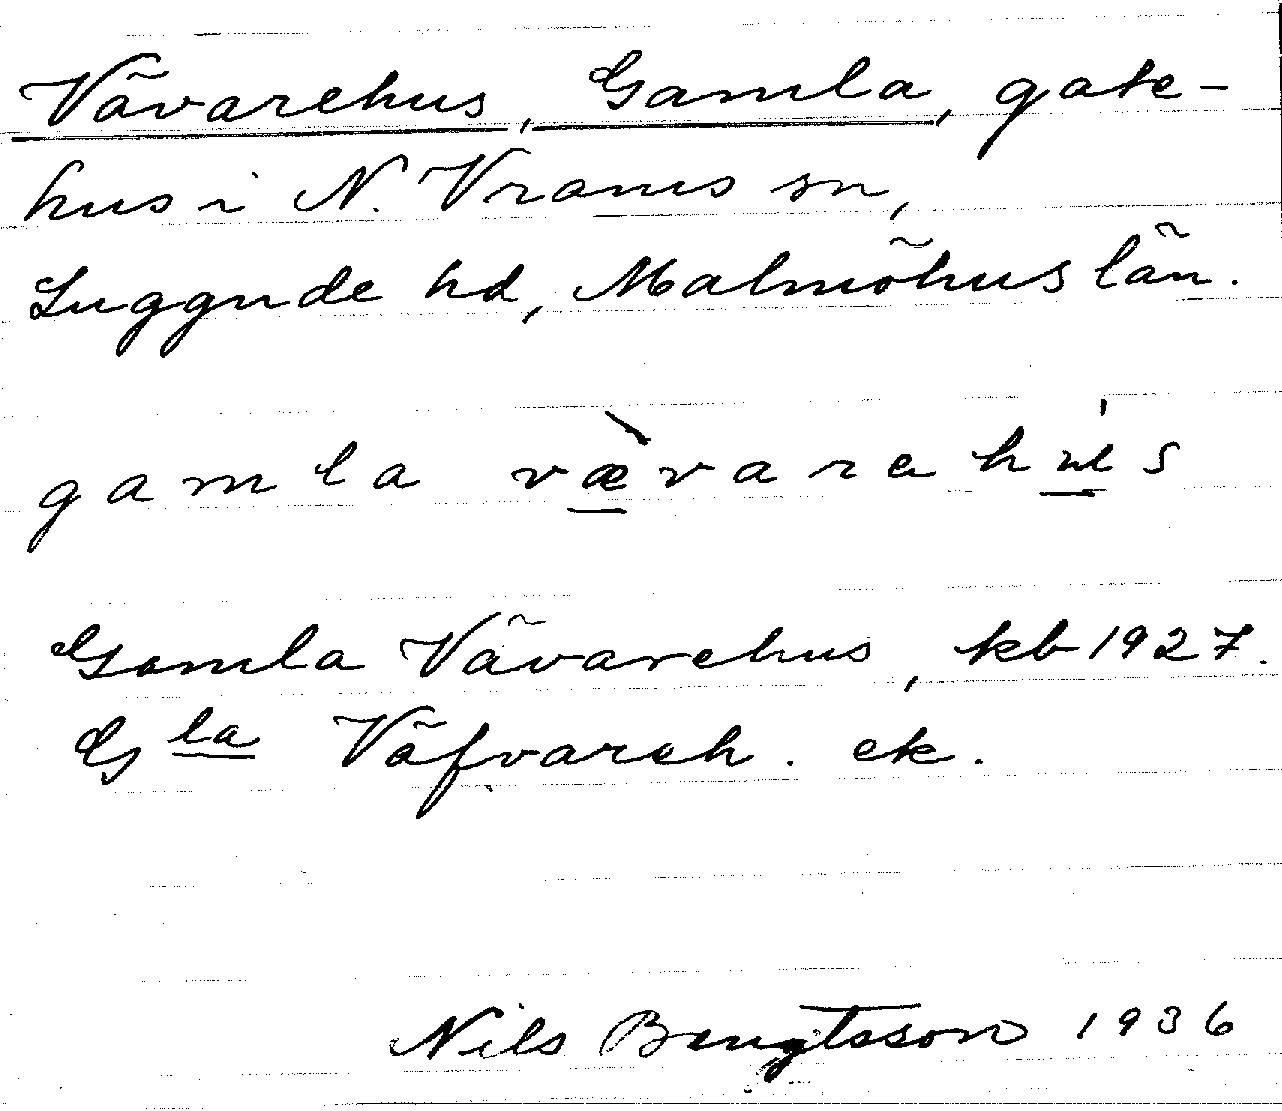 Vävarehus, Gamla, gate-
hus i N. Vrams sn,
Luggude hd, Malmöhus län.
gamla vævarahus
Gamla Vävarehus, kb 1927.
Gla Väfvareh. ek.
Nils Bengtsson 1936